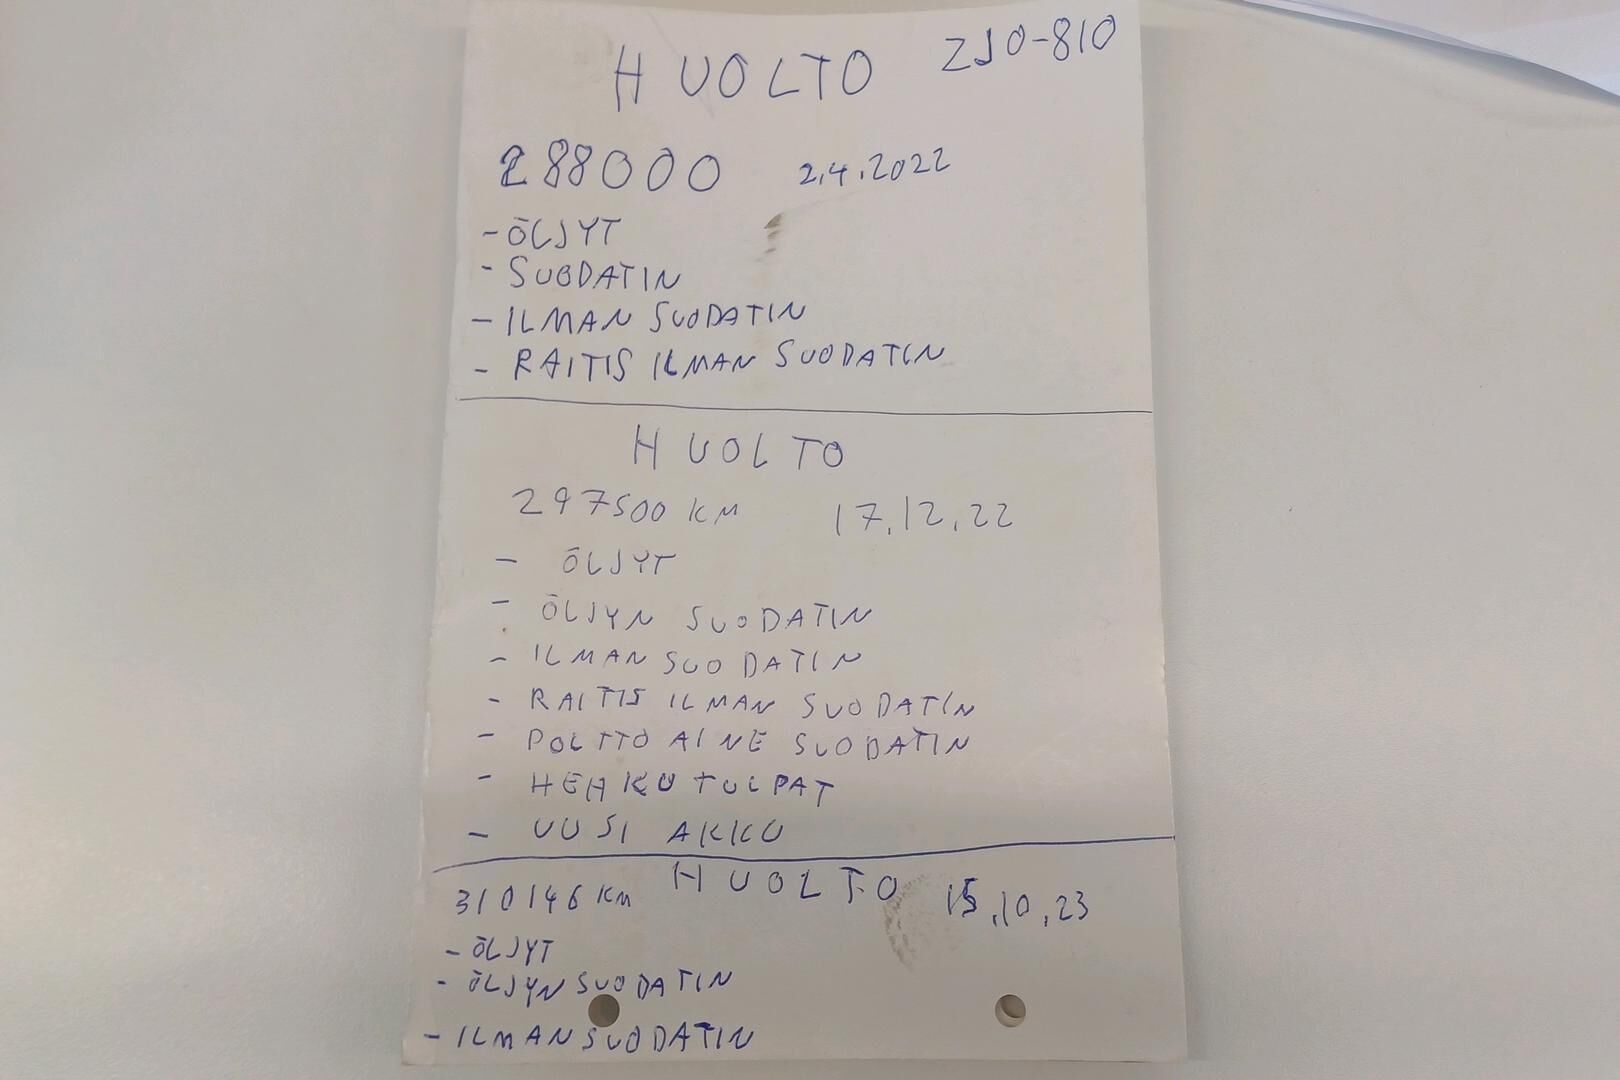 HUOLTO ZJO-810
288000 2.4.2022
- ÖLJYT
- SUODATIN
- ILMAN SUODATIN
- RAITIS ILMAN SUODATIN
HUOLTO
297500 KM 17.12.22
- ÖLJYT
- ÖLJYN SUODATIN
- ILMAN SUODATIN
- RAITIS ILMAN SUODATIN
- POLTTO AINE SUODATIN
- HEHKU TULPAT
- UUSI AKKU
310146 KM HUOLTO 15.10.23
- ÖLJYT
- ÖLJYN SUODATIN
- ILMAN SUODATIN